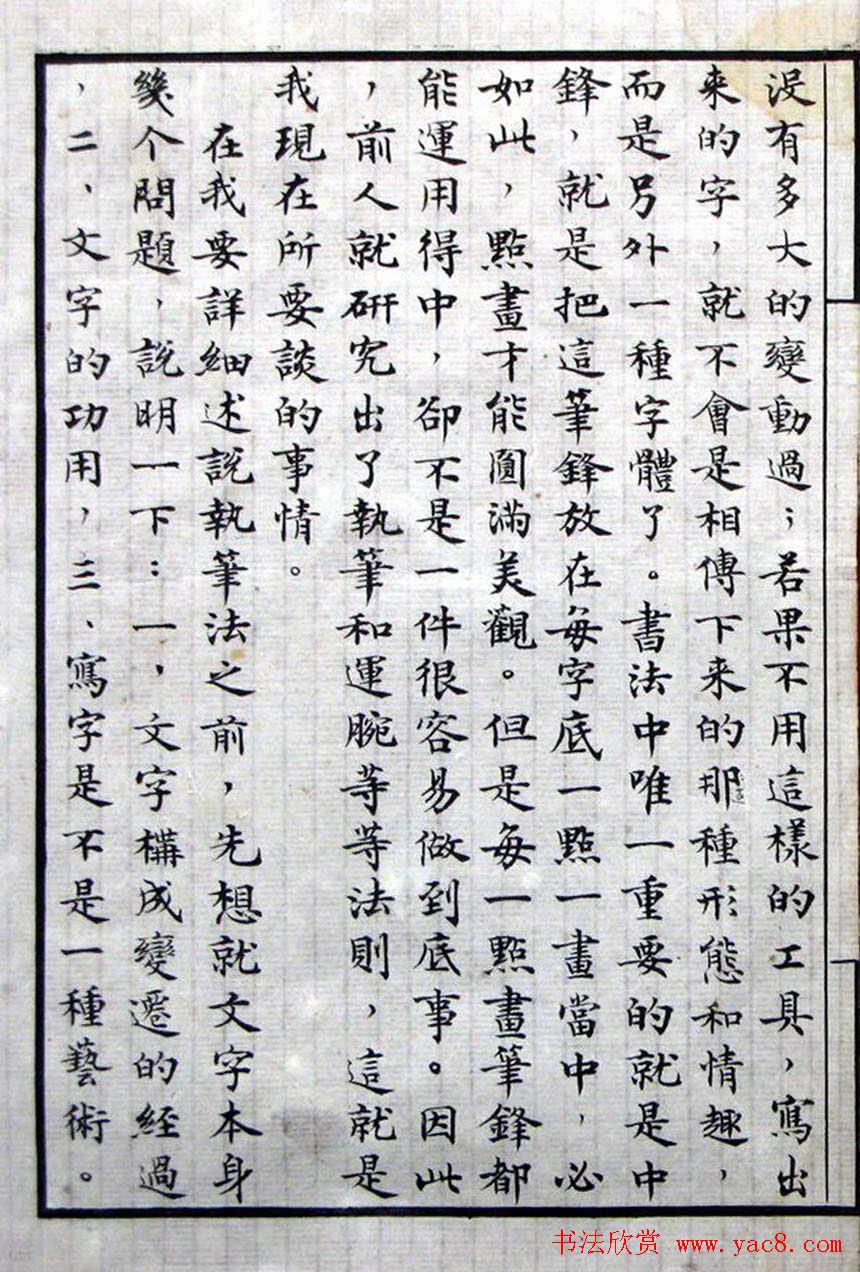 没有多大的變動過；若果不用這樣的工具，寫出
来的字，就不會是相傳下来的那種形態和情趣，
而是另外一種字體了。書法中唯一重要的就是中
鋒，就是把這筆鋒放在每字底一點一畫當中，必
如此，點畫才能圓滿美觀。但是每一點畫筆鋒都
能運用得中，卻不是一件很容易做到底事。因此
，前人就研究出了執筆和運腕等等法則，這就是
我現在所要談的事情。
在我要詳細述說執筆法之前，先想就文字本身
幾个問題，說明一下：一，文字構成變遷的經過
，二、文字的功用，三、寫字是不是一種藝術。
书法欣赏 www.yac8.com